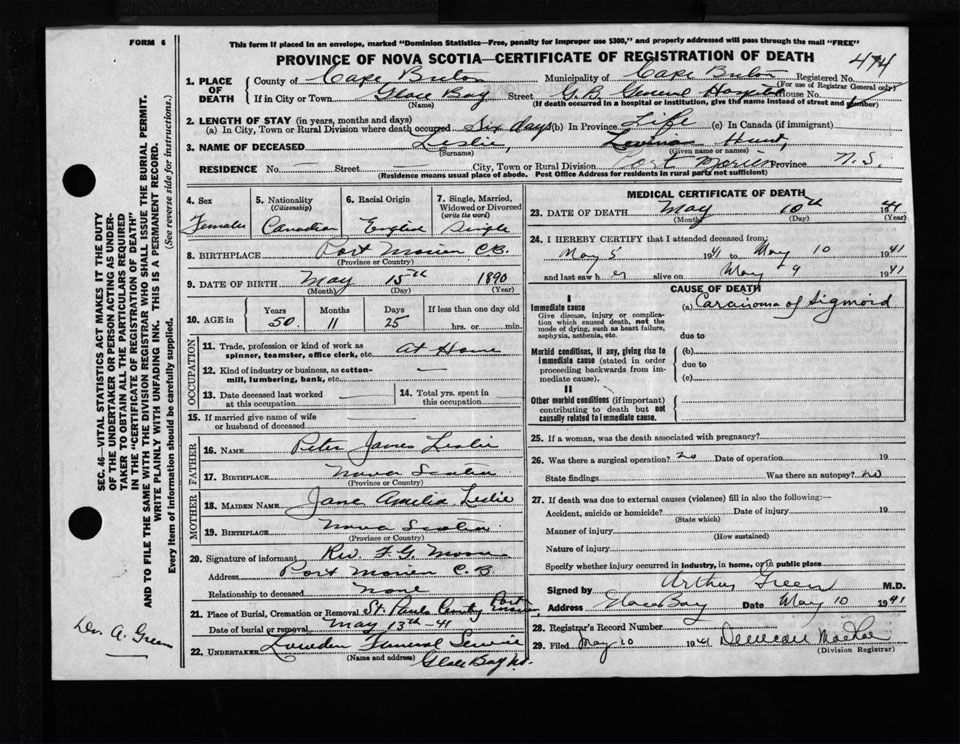 FORM 6
This form if placed in an envelope, marked "Dominion Statistics—Free, penalty for improper use $300," and properly addressed will pass through the mail "FREE"
PROVINCE OF NOVA SCOTIA—CERTIFICATE OF REGISTRATION OF DEATH
474
1. PLACE OF DEATH
County of Cape Breton Municipality of Cape Breton Registered No.
(For use of Registrar General only)
If in City or Town Glace Bay Street G.B. General Hospital House No.
(Name) (If death occurred in a hospital or institution, give the name instead of street and number)
2. LENGTH OF STAY (in years, months and days)
(a) In City, Town or Rural Division where death occurred Six days (b) In Province Life (c) In Canada (if immigrant)
3. NAME OF DECEASED Leslie, Hunt,
(Surname) (Given name or names)
RESIDENCE No. — Street City, Town or Rural Division Port Morien Province N.S.
(Residence means usual place of abode. Post Office Address for residents in rural parts not sufficient)
4. Sex Female
5. Nationality (Citizenship) Canadian
6. Racial Origin English
7. Single, Married, Widowed or Divorced (write the word) Single
8. BIRTHPLACE Port Morien C.B.
(Province or Country)
9. DATE OF BIRTH May 15th 1890
(Month) (Day) (Year)
10. AGE in Years 50 Months 11 Days 25 If less than one day old hrs. or min.
OCCUPATION
11. Trade, profession or kind of work as spinner, teamster, office clerk, etc. At Home
12. Kind of industry or business, as cotton-mill, lumbering, bank, etc. —
13. Date deceased last worked at this occupation —
14. Total yrs. spent in this occupation
15. If married give name of wife or husband of deceased —
FATHER
16. Name Peter James Leslie
17. BIRTHPLACE Nova Scotia
(Province or Country)
MOTHER
18. MAIDEN NAME Jane Amelia Leslie
19. BIRTHPLACE Nova Scotia
(Province or Country)
20. Signature of informant Rev. F. G. Moore
Address Port Morien C.B.
Relationship to deceased None
21. Place of Burial, Cremation or Removal St. Pauls Port
Date of burial or removal May 13th - 41
22. UNDERTAKER Funeral Service
(Name and address) Glace Bay N.S.
MEDICAL CERTIFICATE OF DEATH
23. DATE OF DEATH May 10th 1941
(Month) (Day) (Year)
24. I HEREBY CERTIFY that I attended deceased from:
May 5 1941 to May 10 1941
and last saw her alive on May 9 1941
CAUSE OF DEATH
I
Immediate cause (a) Carcinoma of Sigmoid
Give disease, injury or complication which caused death, not the mode of dying, such as heart failure, asphyxia, asthenia, etc.
due to
Morbid conditions, if any, giving rise to immediate cause (stated in order proceeding backwards from immediate cause).
(b)
due to
(c)
II
Other morbid conditions (if important) contributing to death but not causally related to immediate cause.
25. If a woman, was the death associated with pregnancy?
26. Was there a surgical operation? no Date of operation 19
State findings Was there an autopsy? no
27. If death was due to external causes (violence) fill in also the following:—
Accident, suicide or homicide? Date of injury 19
(State which)
Manner of injury
(How sustained)
Nature of injury
Specify whether injury occurred in industry, in home, or in public place
Signed by Arthur Green M.D.
Address Glace Bay Date May 10 1941
28. Registrar's Record Number
29. Filed May 10 1941 Duncan
(Division Registrar)
SEC. 46—VITAL STATISTICS ACT MAKES IT THE DUTY
OF THE UNDERTAKER OR PERSON ACTING AS UNDER-
TAKER TO OBTAIN ALL THE PARTICULARS REQUIRED
IN THE "CERTIFICATE OF REGISTRATION OF DEATH"
AND TO FILE THE SAME WITH THE DIVISION REGISTRAR WHO SHALL ISSUE THE BURIAL PERMIT.
WRITE PLAINLY WITH UNFADING INK. THIS IS A PERMANENT RECORD.
Every item of information should be carefully supplied. (See reverse side for instructions.)
Dr. A. Green